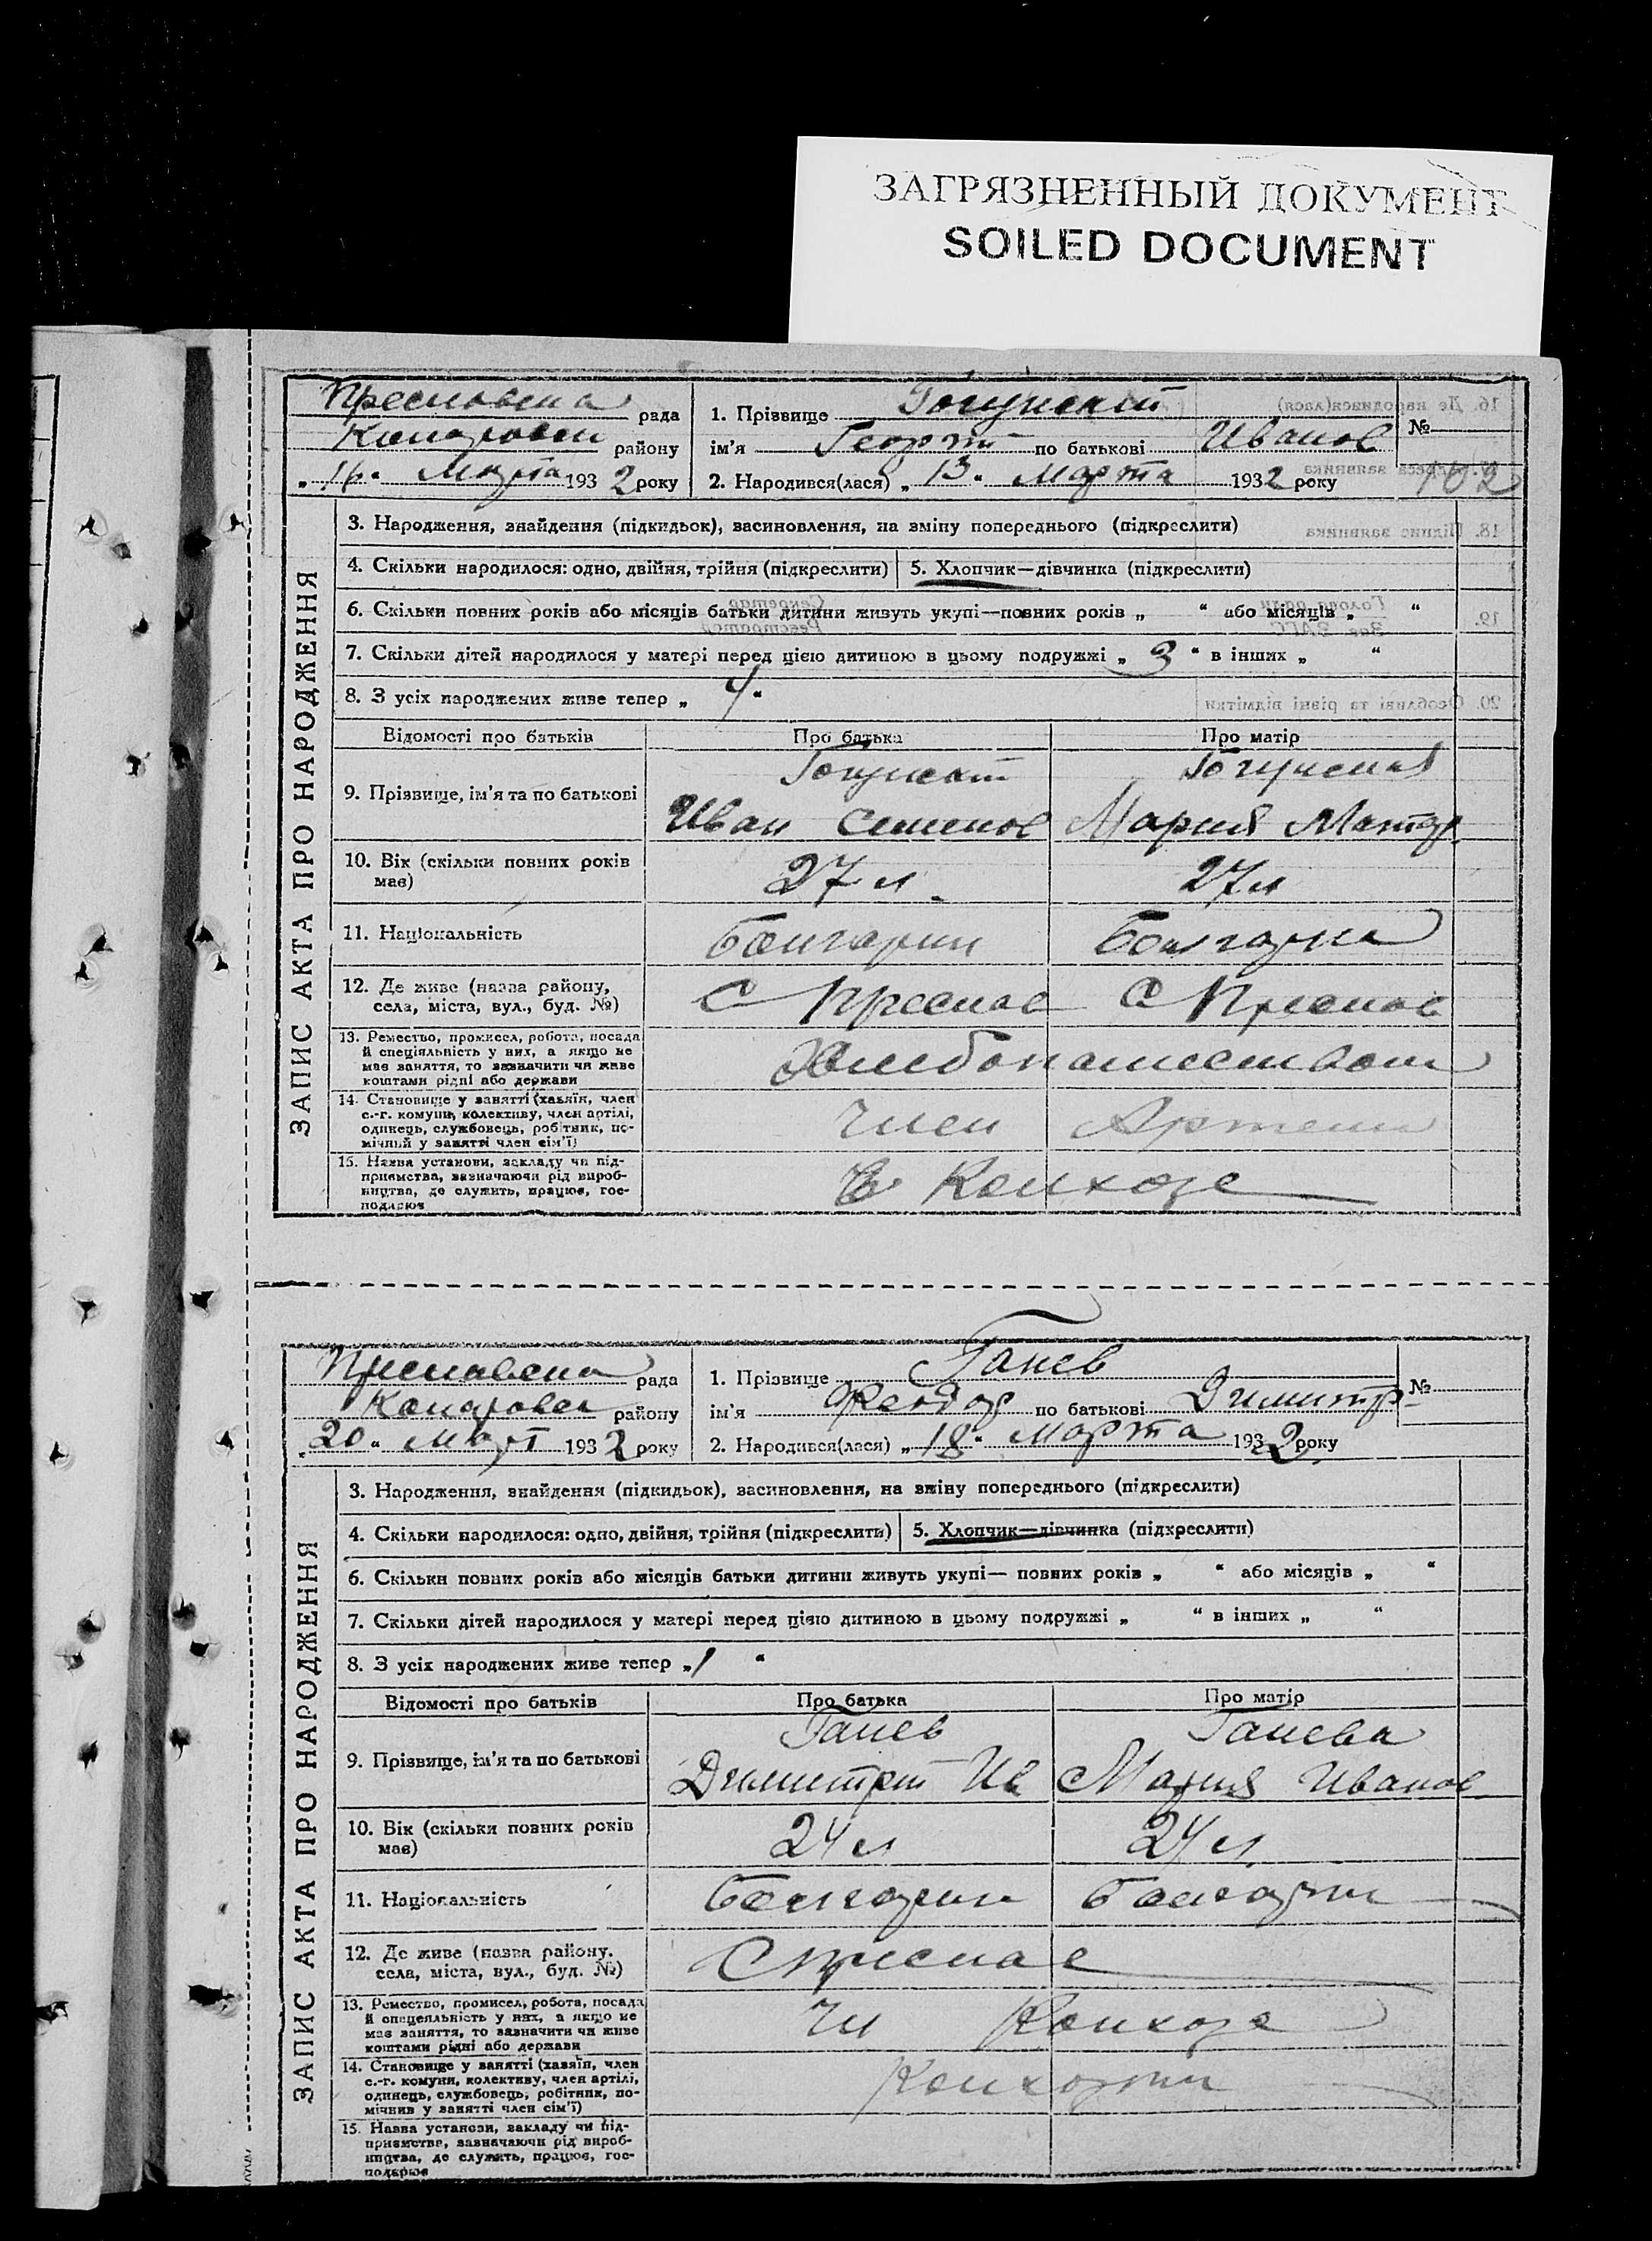 ЗАГРЯЗНЕННЫЙ ДОКУМЕНТ
SOILED DOCUMENT
рада
району
Марта 1932 року
1. Прізвище
ім'я Георгий по батькові Иванов
2. Народився(лася) „13“ Марта 1932 року
№
102
ЗАПИС АКТА ПРО НАРОДЖЕННЯ
3. Народження, знайдення (підкидьок), васиновлення, на зміну попереднього (підкреслити)
4. Скільки народилося: одно, двійня, трійня (підкреслити)
5. Хлопчик—дівчинка (підкреслити)
6. Скільки повних років або місяців батьки дитини живуть укупі—повних років „ “ або місяців „ “
7. Скільки дітей народилося у матері перед цією дитиною в цьому подружжі „ 3 “ в інших „ “
8. З усіх народжених живе тепер „ 4 “
Відомості про батьків Про батька Про матір
9. Прізвище, ім'я та по батькові
Иван Семенов Мария
10. Вік (скільки повних років має) 27 л. 27 л
11. Національність Болгарин Болгарка
12. Де живе (назва району, села, міста, вул., буд. №) С Преслав С Преслав
13. Ремество, промисел, робота, посада
й спеціяльність у них, а якщо не
має заняття, то зазначити чи живе
коштами рідні або держави
Хлебопашеством
14. Становище у занятті (хазяїн, член
с.-г. комуни, колективу, член артілі,
одинець, службовець, робітник, по-
мічний у занятті член сім'ї)
Член Артели
15. Назва установи, закладу чи під-
приємства, зазначаючи рід вироб-
ництва, де служить, працює, гос-
подарює
В Колхозе
рада
району
„20“ Март 1932 року
1. Прізвище Ганев
ім'я Феодор по батькові Димитр
2. Народився(лася) „18“ Марта 1932 року
№
ЗАПИС АКТА ПРО НАРОДЖЕННЯ
3. Народження, знайдення (підкидьок), васиновлення, на зміну попереднього (підкреслити)
4. Скільки народилося: одно, двійня, трійня (підкреслити)
5. Хлопчик—дівчинка (підкреслити)
6. Скільки повних років або місяців батьки дитини живуть укупі— повних років „ “ або місяців „ “
7. Скільки дітей народилося у матері перед цією дитиною в цьому подружжі „ “ в інших „ “
8. З усіх народжених живе тепер „1 “
Відомості про батьків Про батька Про матір
Ганев Ганева
9. Прізвище, ім'я та по батькові
Димитрий Ив Мария Иванов
10. Вік (скільки повних років має) 24 л 24 л
11. Національність Болгарин Болгарки
12. Де живе (назва району, села, міста, вул., буд. №) С Преслав
13. Ремество, промисел, робота, посада
й спецеяльність у них, а якщо не
має заняття, то зазначити чи живе
коштами рідні або держави
Чл Колхоза
14. Становище у занятті (хазяїн, член
с.-г. комуни, колективу, член артілі,
одинець, службовець, робітник, по-
мічник у занятті член сім'ї)
15. Назва установи, закладу чи під-
приємства, зазначаючи рід вироб-
ництва, де служить, працює, гос-
подарює